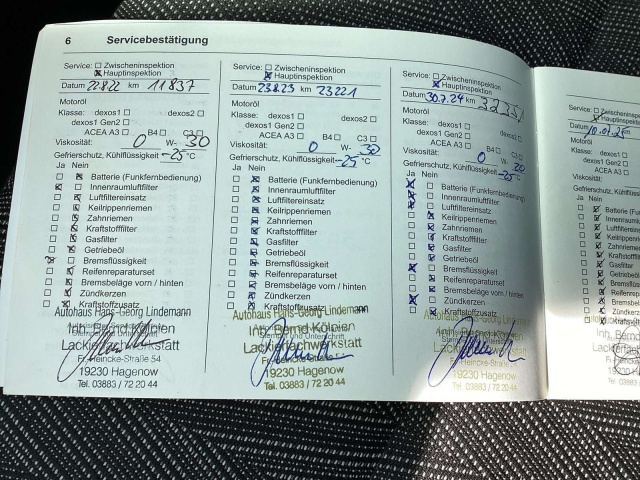 6 Servicebestätigung
Service: ☐ Zwischeninspektion
☒ Hauptinspektion
Datum 22.8.22 km 11837
Motoröl
Klasse: dexos1 ☐ dexos2 ☐
dexos1 Gen2 ☐
ACEA A3 ☐ B4 ☐ C3 ☐
Viskosität: 0 W- 30
Gefrierschutz, Kühlflüssigkeit -25 °C
Ja Nein
☐ ☒ Batterie (Funkfernbedienung)
☒ ☐ Innenraumluftfilter
☐ ☒ Luftfiltereinsatz
☐ ☒ Keilrippenriemen
☐ ☒ Zahnriemen
☐ ☒ Kraftstofffilter
☐ ☒ Gasfilter
☐ ☒ Getriebeöl
☒ ☐ Bremsflüssigkeit
☐ ☒ Reifenreparaturset
☐ ☒ Bremsbeläge vorn / hinten
☐ ☒ Zündkerzen
☐ ☒ Kraftstoffzusatz
Autohaus Hans-Georg Lindemann
Inh. Bernd Kölpien
Lackierfachwerkstatt
Fr.-Heincke-Straße 54
19230 Hagenow
Tel. 03883 / 72 20 44
Service: ☐ Zwischeninspektion
☒ Hauptinspektion
Datum 23.8.23 km 23221
Motoröl
Klasse: dexos1 ☐ dexos2 ☐
dexos1 Gen2 ☐
ACEA A3 ☐ B4 ☐ C3 ☐
Viskosität: 0 W- 30
Gefrierschutz, Kühlflüssigkeit -25 °C
Ja Nein
☐ ☒ Batterie (Funkfernbedienung)
☐ ☒ Innenraumluftfilter
☐ ☒ Luftfiltereinsatz
☐ ☒ Keilrippenriemen
☐ ☒ Zahnriemen
☐ ☒ Kraftstofffilter
☐ ☒ Gasfilter
☐ ☒ Getriebeöl
☐ ☒ Bremsflüssigkeit
☐ ☒ Reifenreparaturset
☐ ☒ Bremsbeläge vorn / hinten
☐ ☒ Zündkerzen
☐ ☒ Kraftstoffzusatz
Autohaus Hans-Georg Lindemann
Inh. Bernd Kölpien
Lackierfachwerkstatt
Fr.-Heincke-Straße 54
19230 Hagenow
Tel. 03883 / 72 20 44
Service: ☐ Zwischeninspektion
☒ Hauptinspektion
Datum 30.7.24 km
Motoröl
Klasse: dexos1 ☐ dexos2 ☐
dexos1 Gen2 ☐
ACEA A3 ☐ B4 ☐ C3 ☐
Viskosität: 0 W- 20
Gefrierschutz, Kühlflüssigkeit -25 °C
Ja Nein
☒ ☐ Batterie (Funkfernbedienung)
☒ ☐ Innenraumluftfilter
☒ ☐ Luftfiltereinsatz
☐ ☒ Keilrippenriemen
☐ ☒ Zahnriemen
☐ ☒ Kraftstofffilter
☐ ☒ Gasfilter
☐ ☒ Getriebeöl
☒ ☐ Bremsflüssigkeit
☐ ☒ Reifenreparaturset
☐ ☒ Bremsbeläge vorn / hinten
☒ ☐ Zündkerzen
☐ ☒ Kraftstoffzusatz
Autohaus Hans-Georg Lindemann
Inh. Bernd Kölpien
Lackierfachwerkstatt
Fr.-Heincke-Straße 54
19230 Hagenow
Tel. 03883 / 72 20 44
Service: ☐
Datum
Motoröl
Klasse: dexos1
dexos1 Gen2
ACEA A3
Viskosität:
Gefrierschutz, Kühlflüssig
Ja Nein
Batterie
Innenraum
Luftfilter
Keilrippen
Zahnriem
Kraftstoff
Gasfilter
Getriebe
Bremsflüs
Reifenrep
Bremsbe
Zündkerz
Inh. Bernd
Lackierfach
19230
Tel. 03883